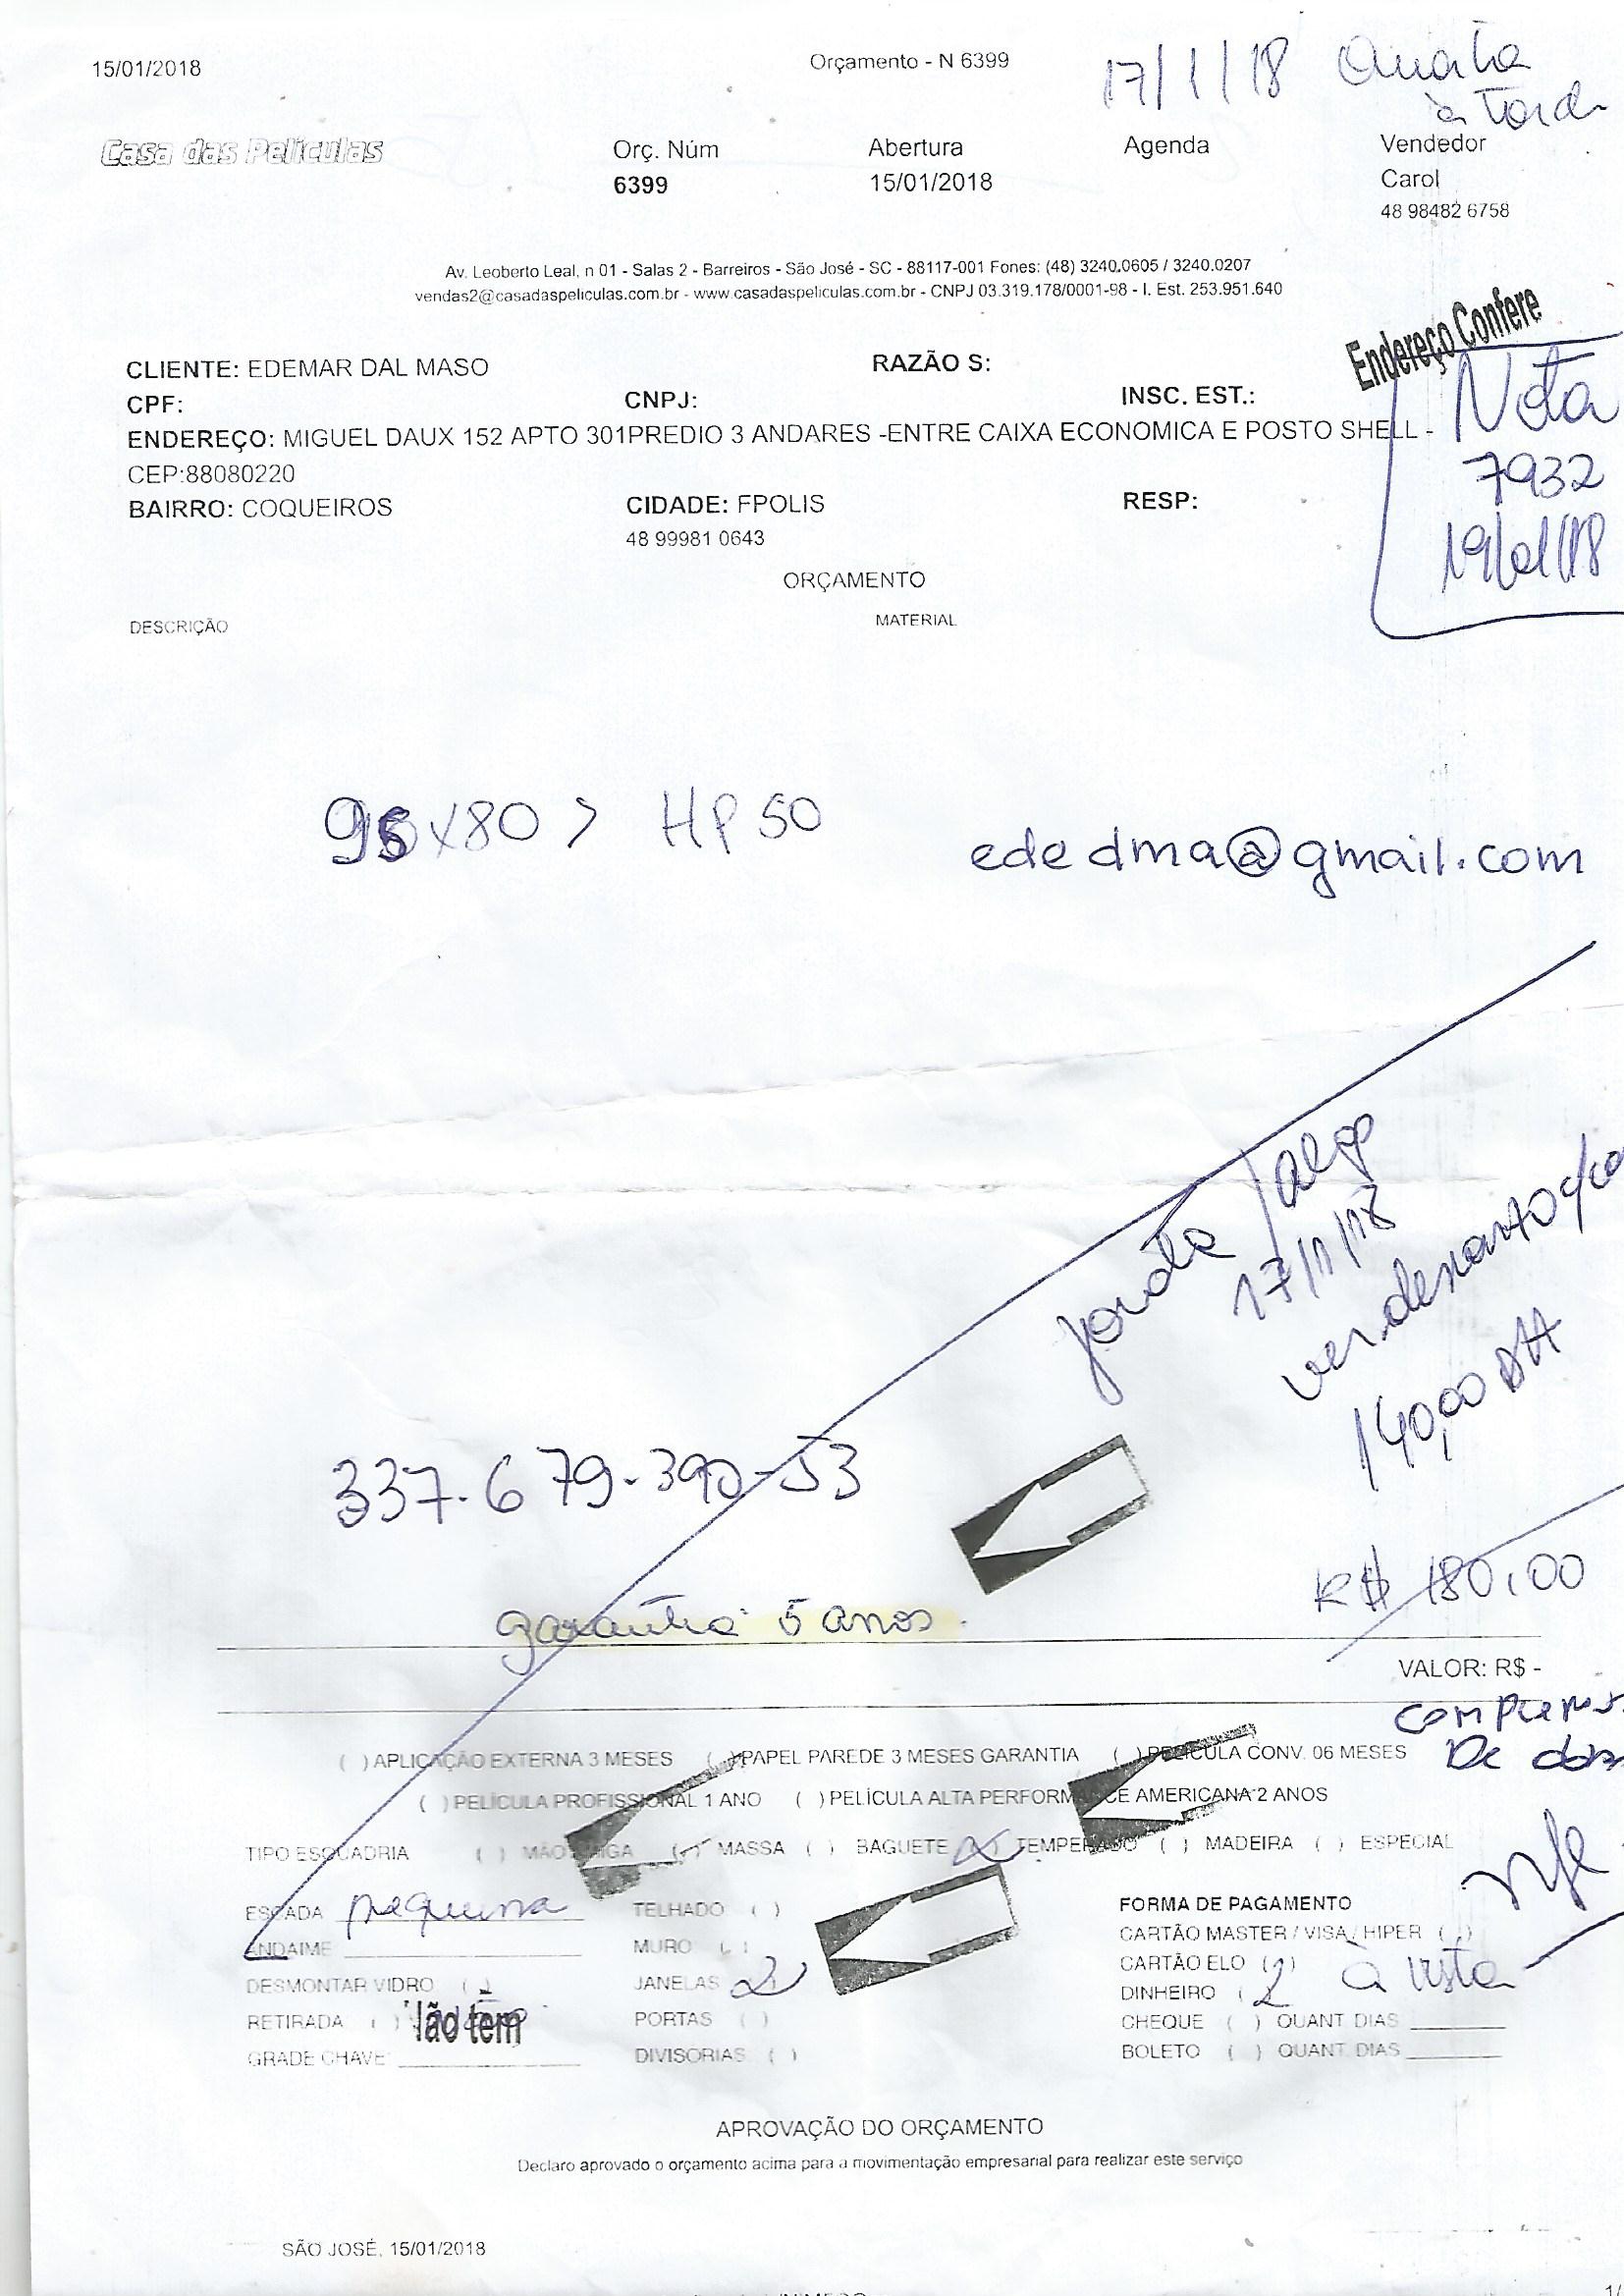 15/01/2018
Orçamento - N 6399
17/1/18 Quarta
à Tarde
Casa das Películas
Orç. Núm
Abertura
Agenda
Vendedor
6399
15/01/2018
Carol
48 98482 6758
Av. Leoberto Leal, n 01 - Salas 2 - Barreiros - São José - SC - 88117-001 Fones: (48) 3240.0605 / 3240.0207
vendas2@casadaspeliculas.com.br - www.casadaspeliculas.com.br - CNPJ 03.319.178/0001-98 - I. Est. 253.951.640
Endereço Confere
Nota
7932
19/01/18
CLIENTE: EDEMAR DAL MASO
RAZÃO S:
CPF:
CNPJ:
INSC. EST.:
ENDEREÇO: MIGUEL DAUX 152 APTO 301PREDIO 3 ANDARES -ENTRE CAIXA ECONOMICA E POSTO SHELL -
CEP:88080220
BAIRRO: COQUEIROS
CIDADE: FPOLIS
RESP:
48 99981 0643
ORÇAMENTO
DESCRIÇÃO
MATERIAL
x80 > HP 50
ededma@gmail.com
17/1/18
140,00
337.679.390-53
garantia 5 anos.
R$ 180,00
VALOR: R$ -
( ) APLICAÇÃO EXTERNA 3 MESES ( ) PAPEL PAREDE 3 MESES GARANTIA ( ) PELÍCULA CONV. 06 MESES
( ) PELÍCULA PROFISSIONAL 1 ANO ( ) PELÍCULA ALTA PERFORMANCE AMERICANA 2 ANOS
TIPO ESQUADRIA ( ) MÃO AMIGA ( ) MASSA ( ) BAGUETE ( ) TEMPERADO ( ) MADEIRA ( ) ESPECIAL
ESCADA pequena
TELHADO ( )
FORMA DE PAGAMENTO
ANDAIME
MURO ( )
CARTÃO MASTER / VISA / HIPER ( )
DESMONTAR VIDRO ( )
JANELAS 2
CARTÃO ELO ( )
à vista
DINHEIRO (
RETIRADA ( )
lão têm
PORTAS ( )
CHEQUE ( ) QUANT. DIAS
GRADE CHAVE
DIVISORIAS ( )
BOLETO ( ) QUANT. DIAS
APROVAÇÃO DO ORÇAMENTO
Declaro aprovado o orçamento acima para a movimentação empresarial para realizar este serviço
SÃO JOSÉ, 15/01/2018